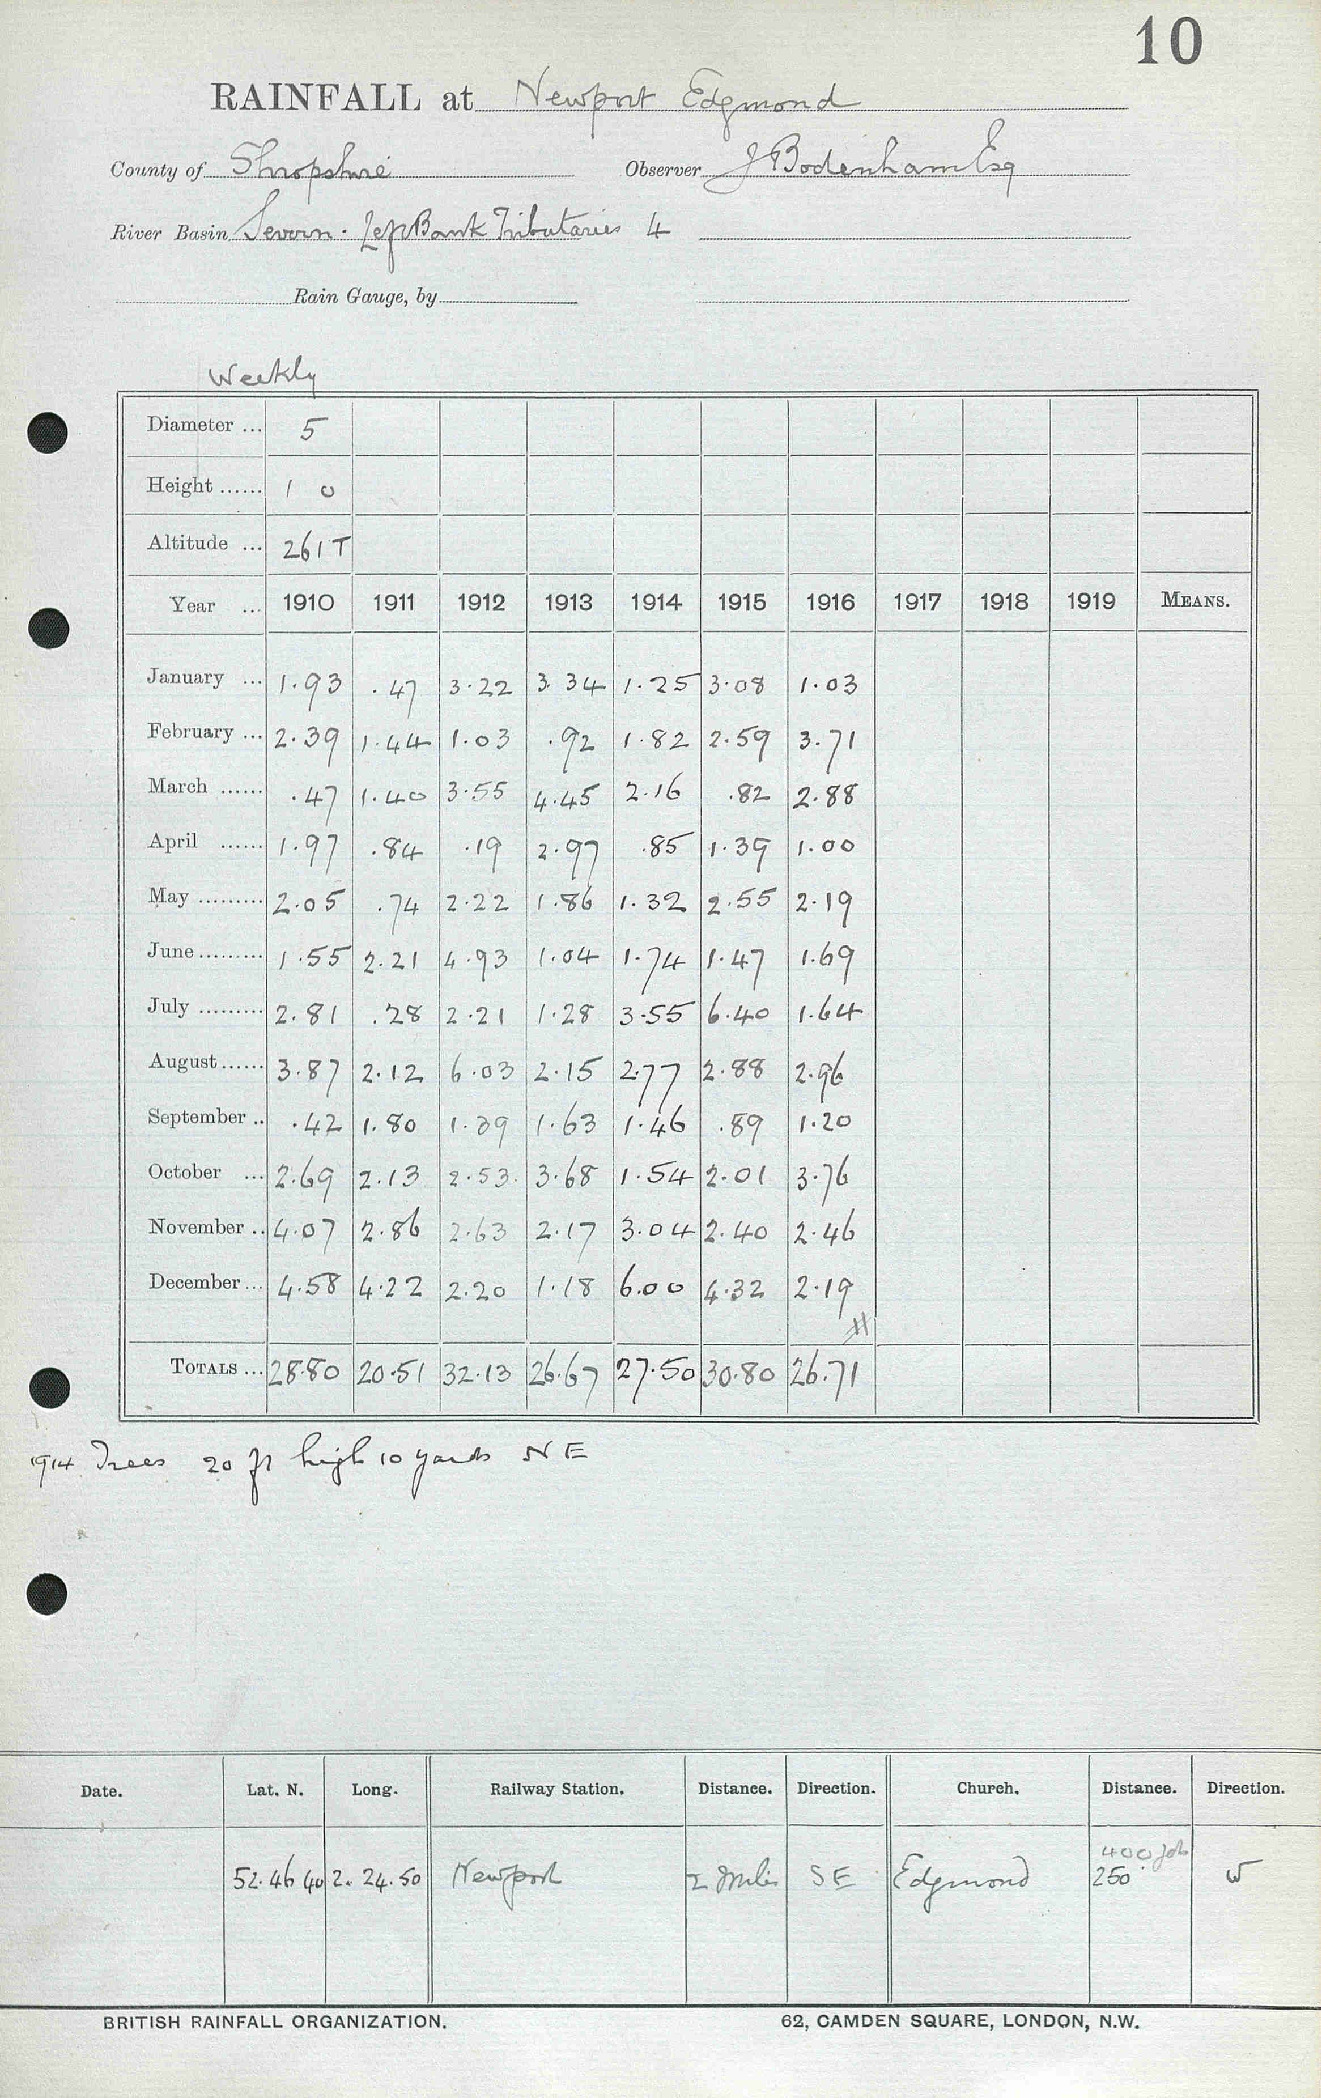 10
RAINFALL at Newport Edgmond
County of Shropshire Observer J Bodenham Esq
River Basin Severn. Left Bank Tributaries 4
Rain Gauge, by
Weekly
Diameter ... 5
Height ...... 1 0
Altitude ... 261 T
Year ... 1910 1911 1912 1913 1914 1915 1916 1917 1918 1919 MEANS.
January ... 1.93 .47 3.22 3.34 1.25 3.08 1.03
February ... 2.39 1.44 1.03 .92 1.82 2.59 3.71
March ...... .47 1.40 3.55 4.45 2.16 .82 2.88
April ...... 1.97 .84 .19 2.97 .85 1.39 1.00
May ......... 2.05 .74 2.22 1.86 1.32 2.55 2.19
June ......... 1.55 2.21 4.93 1.04 1.74 1.47 1.69
July ......... 2.81 .28 2.21 1.28 3.55 6.40 1.64
August ...... 3.87 2.12 6.03 2.15 2.77 2.88 2.96
September .. .42 1.80 1.39 1.63 1.46 .89 1.20
October ... 2.69 2.13 2.53 3.68 1.54 2.01 3.76
November .. 4.07 2.86 2.63 2.17 3.04 2.40 2.46
December ... 4.58 4.22 2.20 1.18 6.00 4.32 2.19
TOTALS ... 28.80 20.51 32.13 26.67 27.50 30.80 26.71
1914 Trees 20 ft high 10 yards NE
Date. Lat. N. Long. Railway Station. Distance. Direction. Church. Distance. Direction.
400 yds
52.46 40 2. 24. 50 Newport 2 Miles SE Edgmond 250 W
BRITISH RAINFALL ORGANIZATION. 62, CAMDEN SQUARE, LONDON, N.W.